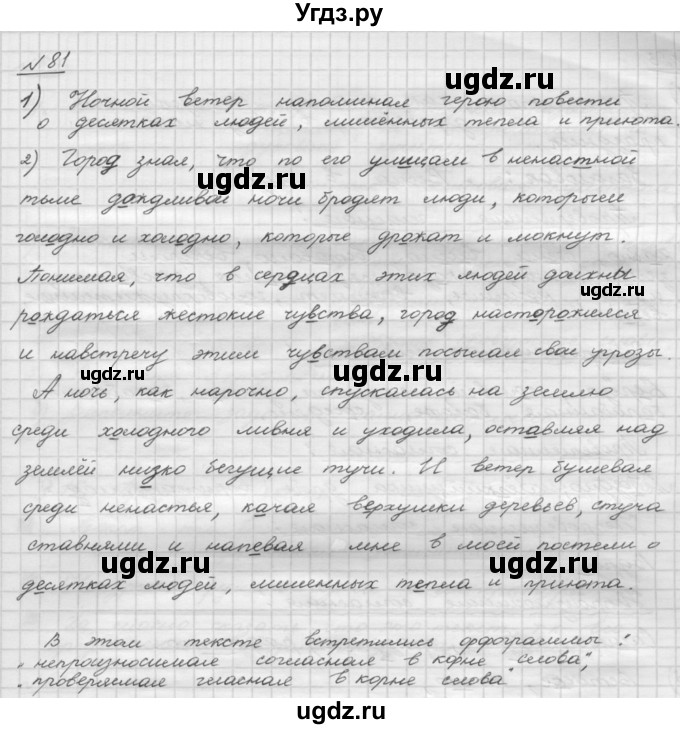 Угдз.ру
№81
1) Ночной ветер напоминал герою повести
о десятках людей, лишённых тепла и приюта.
2) Город знал, что по его улицам в ненастной
тьме дождливой ночи бродят люди, которым
голодно и холодно, которые дрожат и мокнут.
Понимая, что в сердцах этих людей должны
рождаться жестокие чувства, город насторожился
и навстречу этим чувствам посылал свои угрозы.
А ночь, как нарочно, спускалась на землю
среди холодного ливня и уходила, оставляя над
землёй низко бегущие тучи. И ветер бушевал
среди ненастья, качая верхушки деревьев, стуча
ставнями и напевая мне в моей постели о
десятках людей, лишенных тепла и приюта.
В этом тексте встретились орфограммы:
"непроизносимая согласная в корне слова",
"проверяемая гласная в корне слова"
ugdz.ru
ugdz.ru
ugdz.ru
ugdz.ru
ugdz.ru
ugdz.ru
ugdz.ru
ugdz.ru
ugdz.ru
ugdz.ru
ugdz.ru